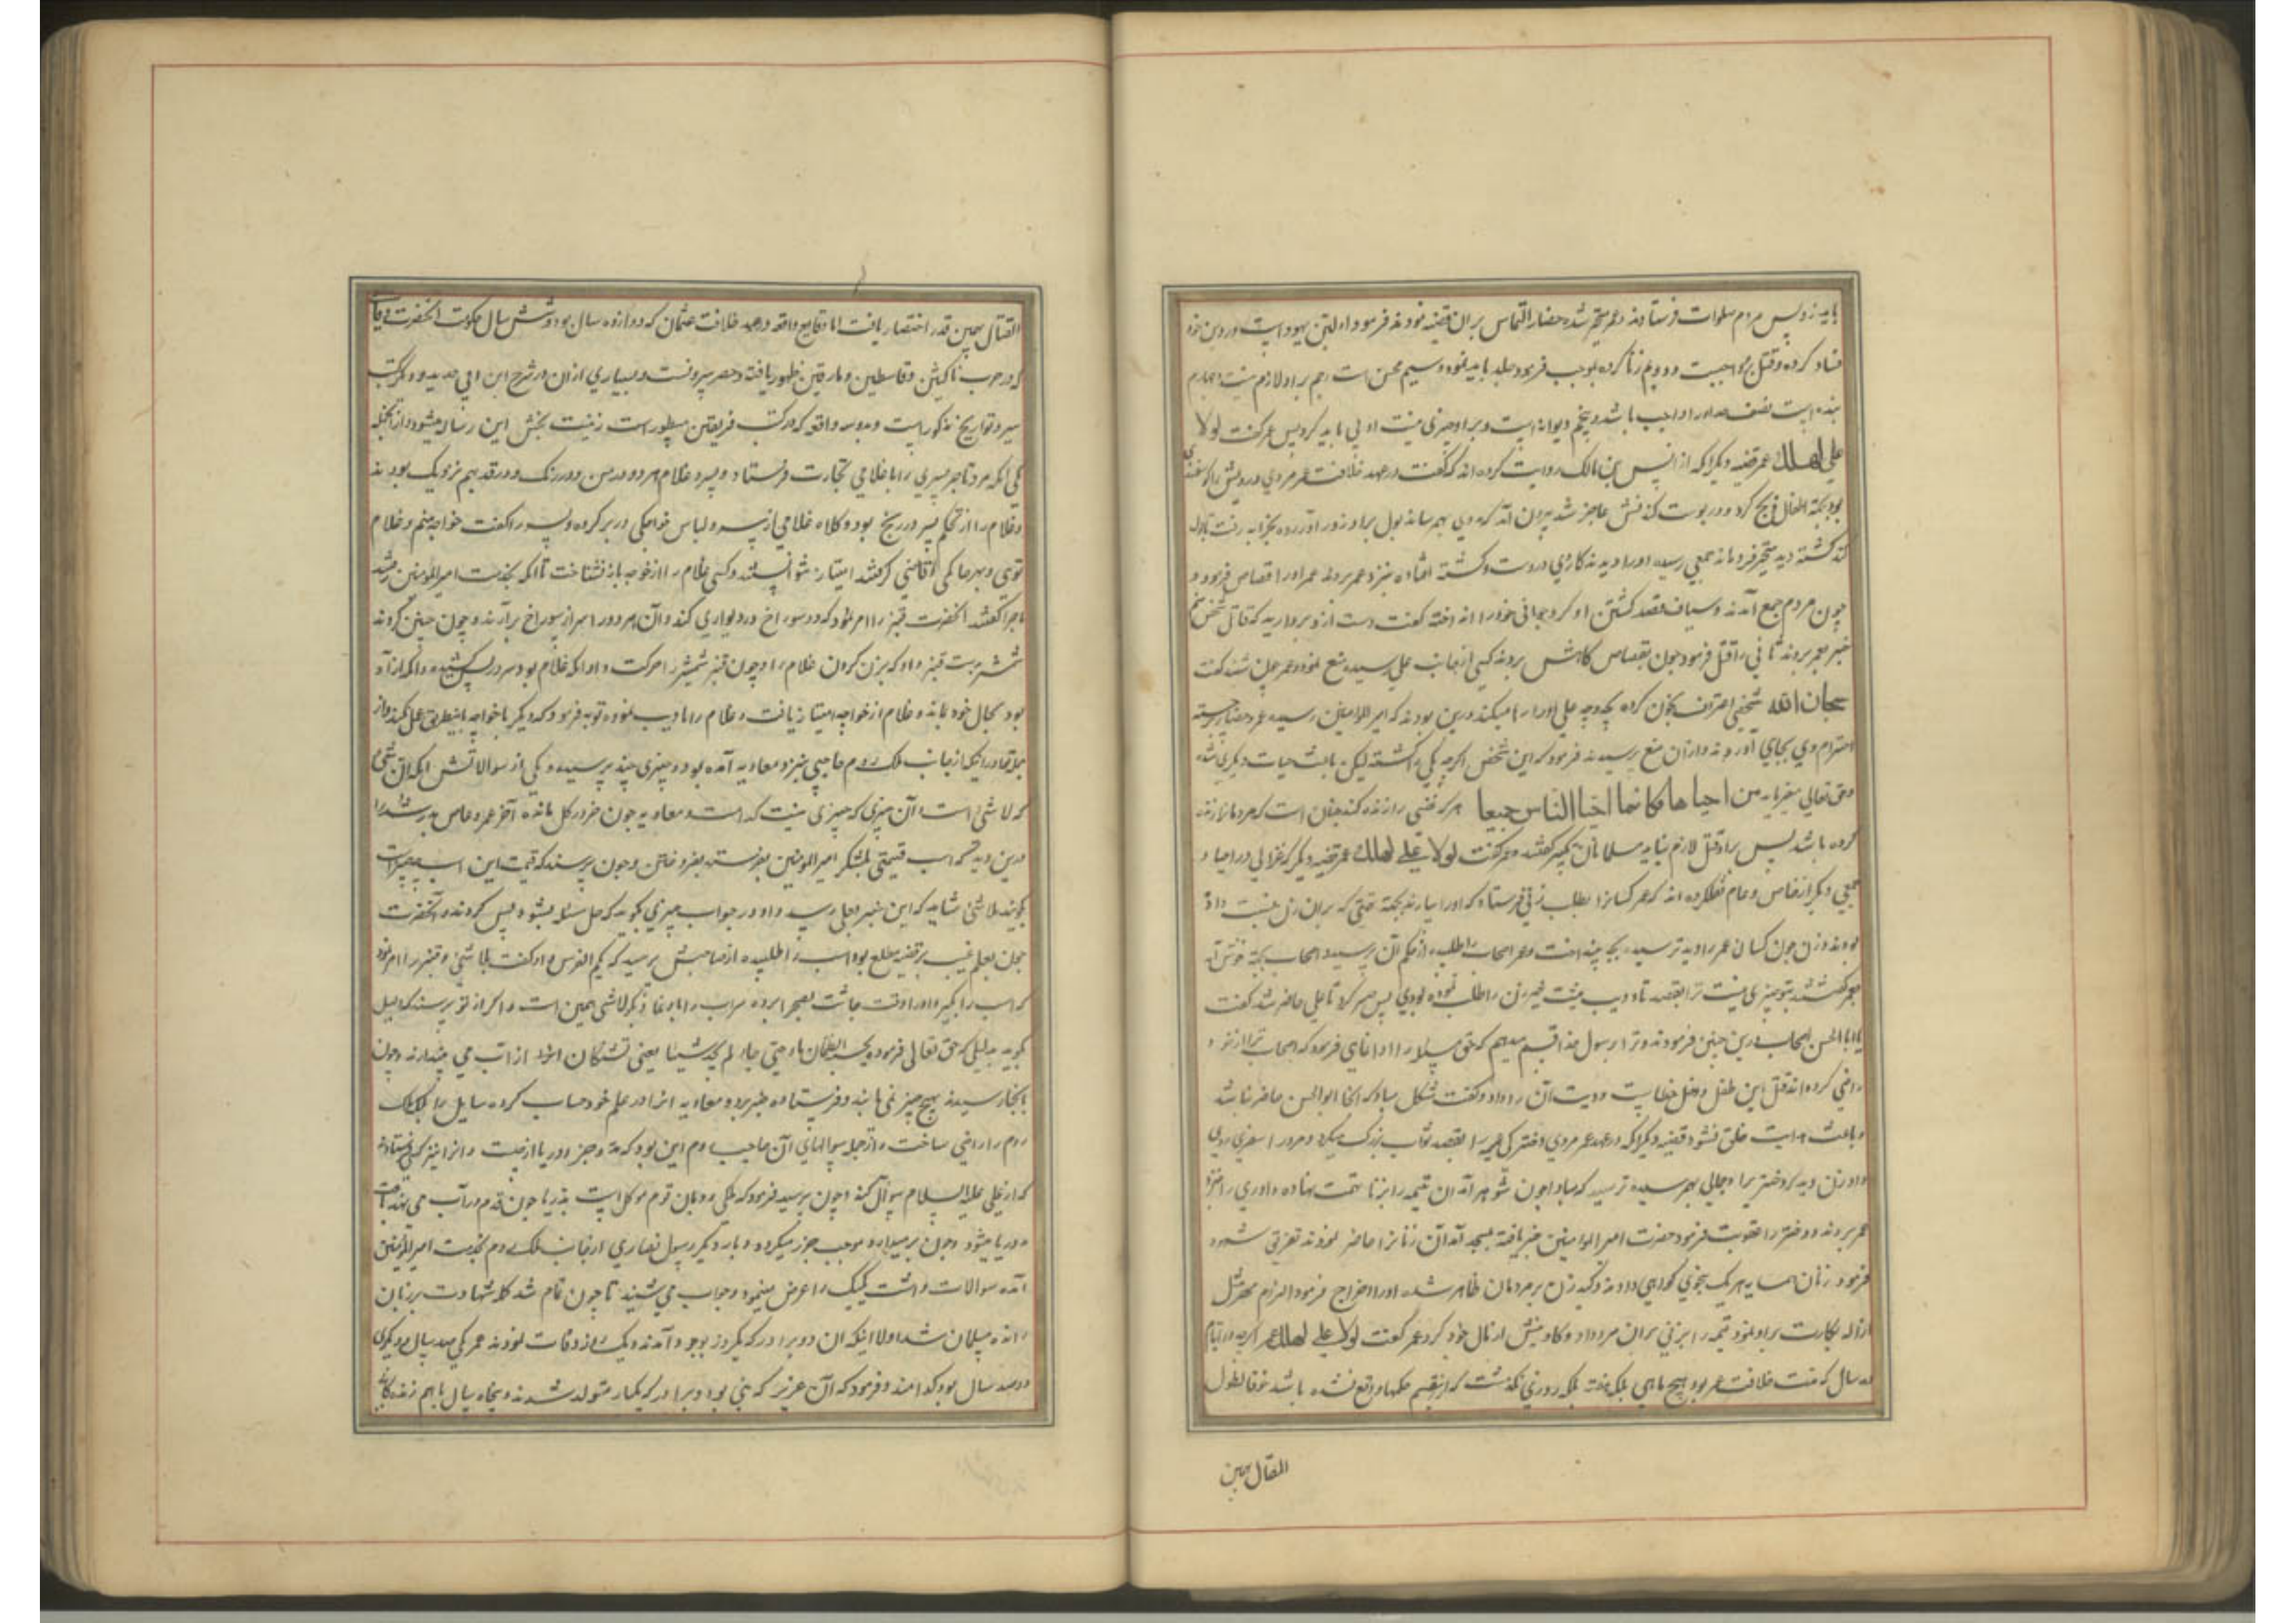 باید زد پس مردم صلوات فرستادند و عمر متحیر شده حضار التماس بران قضیه نمودند فرمود اولین یهودیست در دین خود
فساد کرده و قتل برو واجبست و دویم زنا کرده بموجب فرموده جلد باید نمود و سیم محصن است رجم بر او لازم نیست چهارم
بنده است نصف حد او را واجب باشد و پنجم دیوانه است و بر او چیزی نیست ادبی باید کرد پس عمر گفت لولا
علی لهلك عمر قضیه دیگر آنکه از انس بن مالک روایت کرده اند که گفت در عهد خلافت عمر مردی درویش را گوسفندی
بود بجهة اطفال ذبح کرد و در پوست کندنش عاجز شد بیرون آمد که بول بخرابه رفت
کشته دید متحیر فرو ماند جمعی رسیده او را دیدند کاردی در دست و کشته افتاده بنزد عمر بردند عمر او را قصاص فرمود و
چون مردم جمع آمدند و سیاف قصد کشتن او کرد جوانی خود را انداخته گفت دست ازو بردارید که قاتل شخص منم
خبر بعمر بردند ثانی را قتل فرمود چون بقصاص گاهش بردند کسی از جانب علی رسیده منع نمود و عمر گفت
سبحان الله شخصی اعتراف بخون کرده بچه وجه علی او را رها میکند درین بودند که امیر المومنین رسید عمر و حضار برجسته
احترام وی بجای آوردند و از ان منع پرسیدند فرمود که این شخص اگرچه یکی را کشته لیکن باعث حیات دیگری شده
و حق تعالی میفرماید من احیاها فکانما احیا الناس جمیعا هر که نفسی را زنده کند چنان است که مردمانرا زنده
کرده باشد پس بر او قتل لازم نیاید مسلمانان تکبیر گفتند و عمر گفت لولا علی لهلك عمر قضیه دیگر که غزالی در احیا و
جمعی دیگر از خاص و عام نقل کرده اند که عمر کسانرا بطلب زنی فرستاد که او را بیارند بجهة که بران زن نسبت داده
بودند و زن چون کسان عمر را دید ترسیده بچه بینداخت و عمر اصحاب را طلبیده از حکم آن پرسید و اصحاب بجهة خوش آمد
عمر گفتند بتو چیزی نیست ترا بقصد تادیب زن را طلب نموده بودی پس صبر کرد تا علی حاضر شد گفت
یا ابا الحسن اصحاب درین چنین فرمودند و ترا برسول خدا قسم میدهم که حق مسئله را ادا نمای فرمود که اصحاب ترا از خود
راضی کرده اند قتل این طفل داخل خطاست و دیت آن را داد و گفت مشکل مباد که انجا ابو الحسن حاضر نباشد
و باعث هدایت خلق نشود قضیه دیگر آنکه در عهد عمر مردی دختر یتیمه را بقصد ثواب بزرگ میکرد و مرد را سفری روی
داد زن دید که دختر را جمالی بهم رسیده ترسید که مبادا چون شوهر آمد ان یتیمه را بزنا تهمت نهاده داوری را بنزد
عمر بردند و دختر را عقوبت فرمود حضرت امیر المومنین خبر یافته بمسجد آمد آن زنانرا حاضر نمودند تفریق شهود
فرمود زنان همسایه هر یک بنحوی گواهی دادند و کید زن بر مردمان ظاهر شده او را اخراج فرمود و الزام مهر مثل
ازاله بکارت بر او نمود و یتیمه را بزنی بران مرد داد و کابینش از مال خود کرد عمر گفت لولا علی لهلك عمر اگرچه در ایام
ده سال که مدت خلافت عمر بود هیچ ماهی بلکه هفته بلکه روزی نگذشت که ازینقسم حکمها واقع نشده باشد خوفا لطول
المقال بهمین
المقال بهمین قدر اختصار یافت اما وقایع واقعه در عهد خلافت عثمان که دوازده سال بود و شش سال حکومت آنحضرت وقایع
که در حرب ناکثین و قاسطین و مارقین ظهور یافته از حصر بیرونست و بسیاری از ان در شرح ابن ابی الحدید و دیگر کتب
سیر و تواریخ مذکور است و دو سه واقعه که در کتب فریقین مسطور است زینت بخش این رساله میشود از آنجمله
یکی آنکه مرد تاجر پسری را با غلامی بتجارت فرستاد و پسر و غلام هر دو در سن و در رنگ و در قد بهم نزدیک بودند
و غلام را از تحکم پسر در رنج بود و کلاه غلامی از سر و لباس خواجگی در بر کرده و پسر را گفت خواجه منم و غلام
توی و بهر حاکمی و قاضی که رفتند امتیاز نتوانستند و کسی غلام را از خواجه باز نشناخت تا آنکه بخدمت امیر المومنین رفتند
ماجرا گفتند آنحضرت قنبر را امر نمود که دو سوراخ در دیواری کند و آن هر دو را سر از سوراخ برآرند و چون چنین کردند
شمشیر بدست قنبر داد که بزن گردن غلام را و چون قنبر شمشیر را حرکت داد آنکه غلام بود سر در پس کشید و آنکه آزاد
بود بحال خود ماند و غلام از خواجه امتیاز یافت و غلام را تادیب نموده توبه فرمود که دیگر با خواجه باینطریق عمل نکند و از
جمله قضایا دیگر آنکه از جانب ملک روم حاجبی بنزد معاویه آمده بود و چیزی چند پرسیده و یکی از سوالاتش آنکه آن شی
که لا شی است و آن چیزی که چیزی نیست کدامست و معاویه چون خر در گل مانده آخر عمرو عاص
درین دید که اسب قیمتی بلشکر امیر المومنین بفرستد بفروختن و چون پرسند که قیمت این اسب بچه چیز است
گویند بلا شی شاید که این خبر بعلی رسد و او در جواب چیزی بگوید که حل مسئله بشود پس کردند و آنحضرت
چون بعلم غیب بر قضیه مطلع بود اسب را طلبیده از صاحبش پرسید که بکم الفرس و او گفت بلا شی و قنبر را امر نمود
که اسب را بگیر و او را وقت چاشت بصحرا برده سراب را باو نما و بگو لا شی همین است و اگر از تو پرسند که دلیل
بگوید بدلیلی که حق تعالی فرموده یحسبه الظمان ماء حتی اذا جاءه لم یجده شیئا یعنی تشنگان او را از آب می پندارند و چون
بانجا رسیدند هیچ چیز نمی یابند و فرستاده خبر برد و معاویه انرا در علم خود حساب کرده سایل را و ملک
روم را راضی ساخت و از جمله سوالهای آن حاجب روم این بود که مد و جزر دریا از چیست و انرا نیز کس فرستاد
که از علی علیه السلام سوال کند و چون پرسید فرمود که ملکی رومان نام موکل است بدریا چون قدم در آب می نهد
دریا میشود و چون برمیدارد موجب جزر میگردد و بار دیگر رسول نصاری از جانب ملک روم بخدمت امیر المومنین
آمده سوالات داشت یک یک را عرض مینمود و جواب می شنید تا چون تمام شد کلمه شهادت بر زبان
رانده مسلمان شد اولا اینکه ان دو برادر که یکروز بوجود آمدند و یکروز وفات نمودند عمر یکی صد سال و دیگری
دویست سال بود کدامند و فرمود که آن عزیر که نبی بود و برادرش که یکبار متولد شدند و پنجاه سال با هم زندگانی